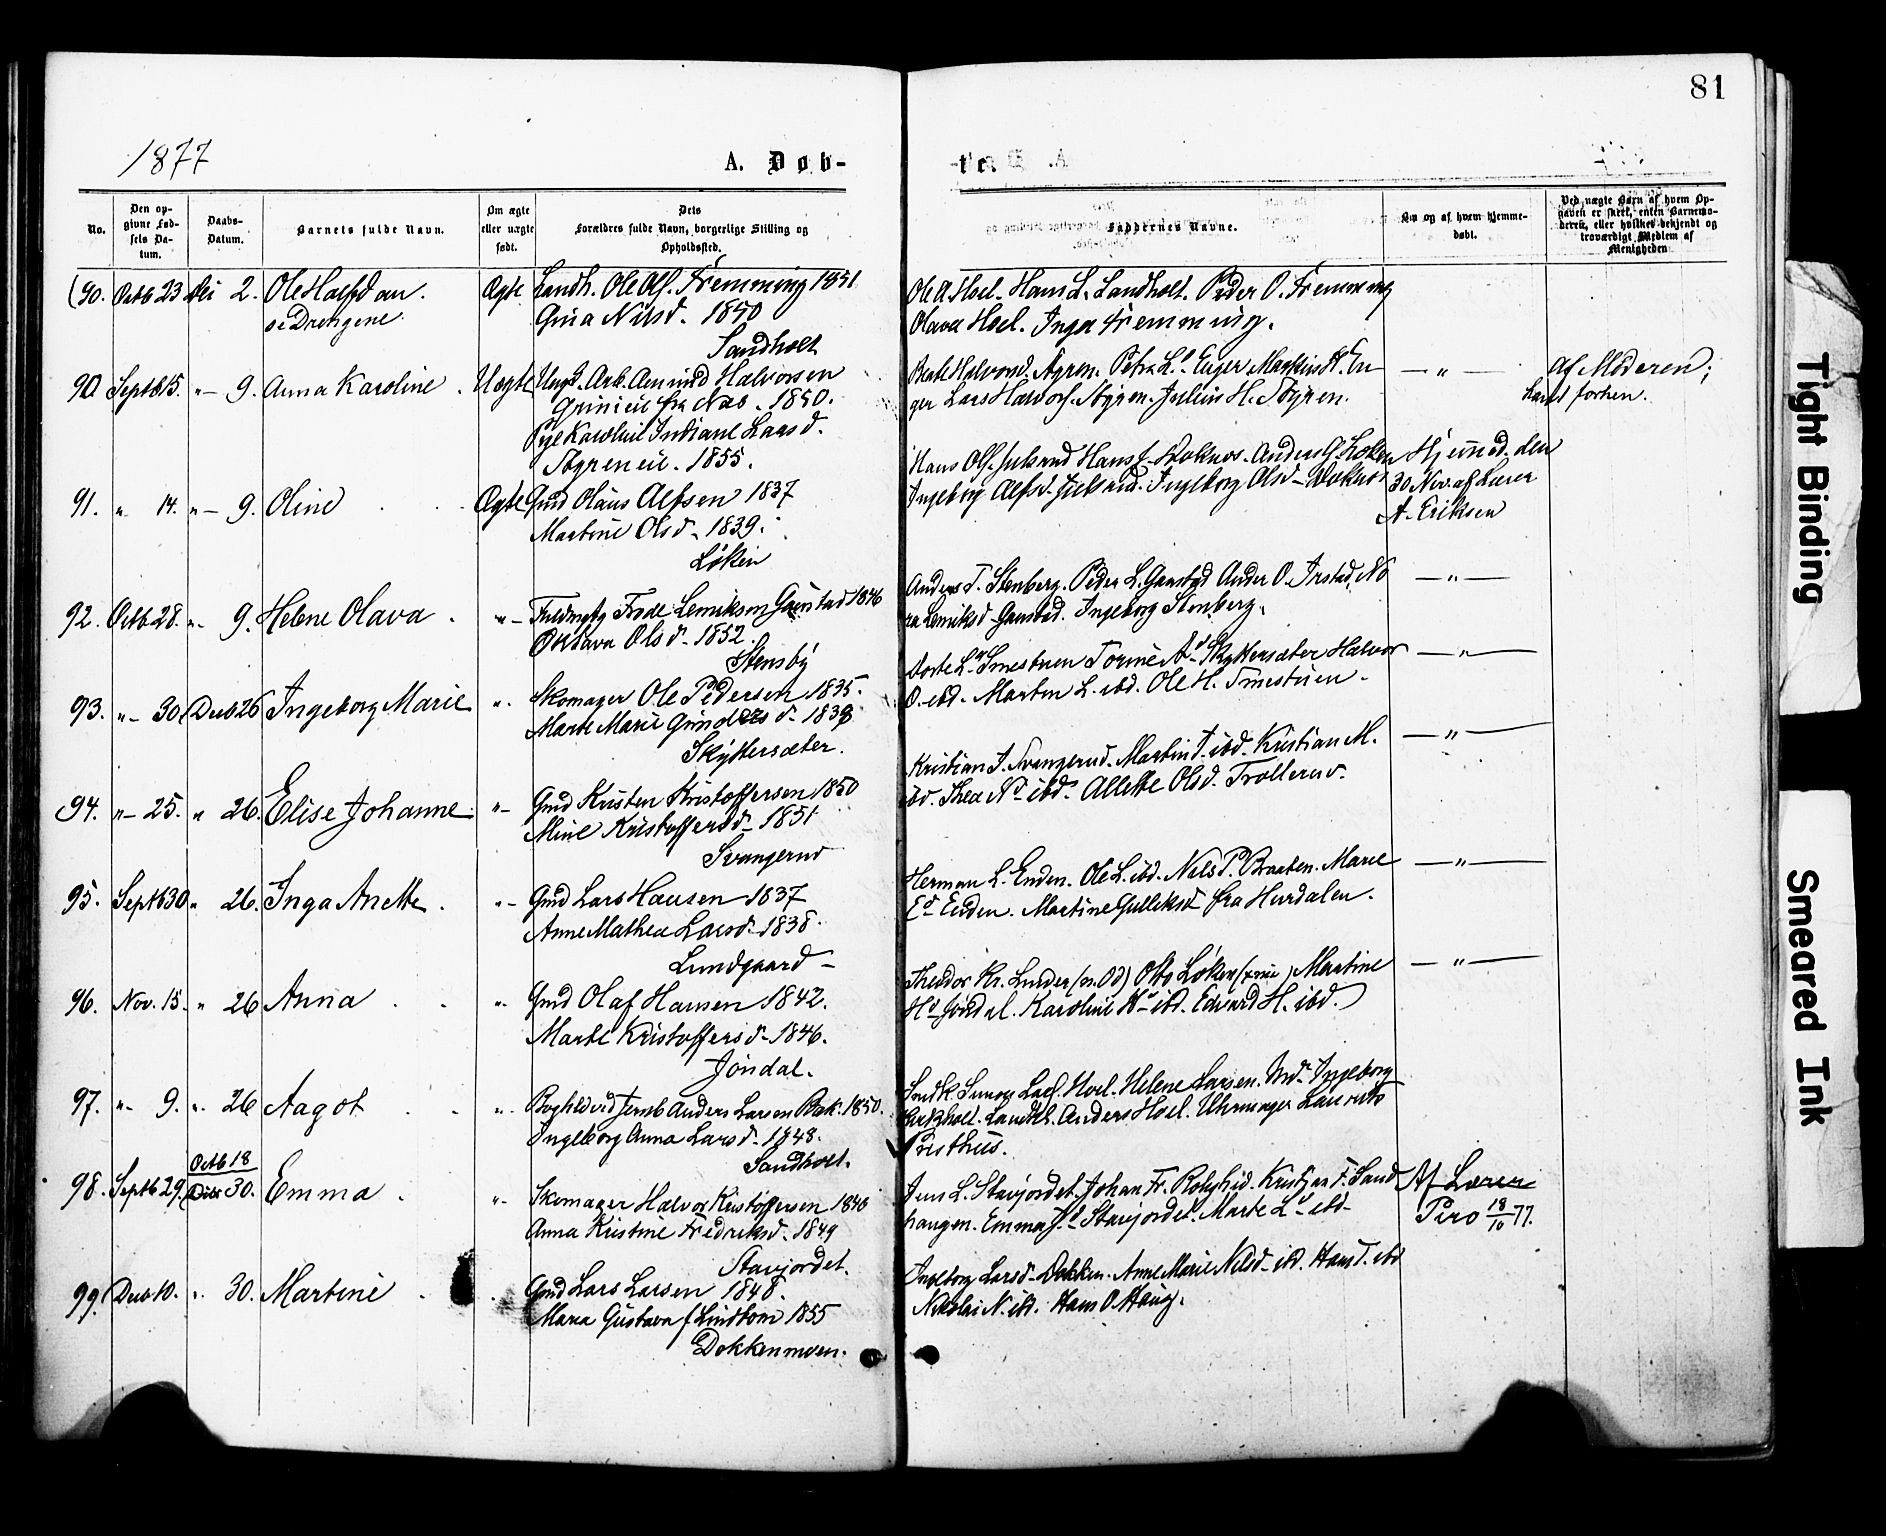 81
1877
A. Døb-
te.
No.
Den op-
givne Fød-
sels Da-
tum.
Daabs-
Datum.
Barnets fulde Navn.
Om ægte
eller uægte
født.
Dets
Forældres fulde Navn, borgerlige Stilling og
Opholdssted.
Faddernes Navne.
Om og af hvem hjemme-
døbt.
Ved uægte Barn af hvem Op-
gaven er skeet, enten Barnemo-
deren, eller hvilket bekjendt og
troværdigt Medlem af
Menigheden
(90. Octb 23 2. Ole Halfdan.
se Drengene.
Ægte Landh. Ole Ols. Fremming 1851
Gina Nilsd. 1850
Sandholt
Ole A. Hoel. Hans L. Sandholt. Peder O. Fremming
Olava Hoel. Inga Fremming.
90 Septb 15. "- 9. Anna Karoline.
Uægte Ungk. Arb. Amund Halvorsen
fra Næs. 1850.
Pige Karoline Indiane Larsd.
1855.
Beate Halvorsd. Styren. Petra L.d Enger H. En-
ger Lars Halvors. Styren. Julius H. Styren.
— " —
Af Moderen;
havt forhen.
91. " 14. "- 9. Oline
Ægte Gmd Olaus Alfsen 1837
Martine Olsd. 1839.
Løken
Hans Ols. Hans Anders G. Løken
Ingeborg Alfsd. Ingeborg Olsd.
Hjemmed. den
30 Nov. af Lærer
A. Eriksen
92. Octb 28. "- 9. Helene Olava.
"- Frode Lemiksen Ganstad 1846
Oktava Olsd. 1852.
Stensby
Anders T. Stenberg. Peder L. Ganstad Ander O. No-
ra Lemiksd. Ganstad. Ingeborg Stenberg.
— " —
93. "- 30. Decb 26 Ingeborg Marie
". Skomager Ole Pedersen 1835.
Marte Marie d. 1839
Skyttersæter.
Dorte L.d Smestuen A.d Skyttersæter Halvor
O. ibd. Marten L. ibd. Ole H. Smestuen.
— " —
94. "- 25. " 26. Elise Johanne.
"- Gmd Kristen Kristoffersen 1850
Mine Kristoffersd. 1851
Svangerud
Kristian Svangerud. Martin ibd. Kristian M.
ibd. Thea N.d ibd. Allette Olsd. Trollerud.
— " —
95. Septb 30. " 26. Inga Anette.
"- Gmd Lars Hansen 1837
Anne Mathea Larsd. 1838.
Lundgaard
Herman L. Enden. Ole L. ibd. Nils P. Braaten. Marie
E.d Enden. Martine Gulliksd. fra Hurdalen.
— " —
96. Nov. 15. " 26 Anna.
"- Gmd Olaf Hansen 1842.
Marte Kristoffersd. 1846.
Jøndal.
Theodor Kr. Otto Løken Martine
H.d Jøndal. Karoline H.d ibd. Edvard H. ibd.
— " —
97. "- 9. ". 26 Aagot.
"- Anders Larsen Bak. 1850.
Ingeborg Anna Larsd. 1848.
Sandholt.
Lars. Hoel. Helene Larsen. Ingeborg
Sandholt. Landh. Anders Hoel. Uhrmager Laurits
Presthus.
98. Septb 29. Octb 18
Decb 30. Emma.
"- Skomager Halvor Kristoffersen 1846
Anna Kristine Fredriksd. 1849
Stavjordet.
Jens L. Stavjordet. Johan Fr. Kristian F. Sand-
haugen. Emma Stavjordet. Marte L.d ibd.
Af Lærer
Piro 18/10 77.
99. Decb 10. ". 30. Martine.
. Gmd Lars Larsen 1848.
Maria Gustava Lindbom 1855
Dokkenmoen.
Ingeborg Larsd. Dokken. Anne Marie Nilsd. ibd. Hans T. ibd
Nikolai N. ibd. Hans O. Haug.
Tight Binding
Smeared Ink